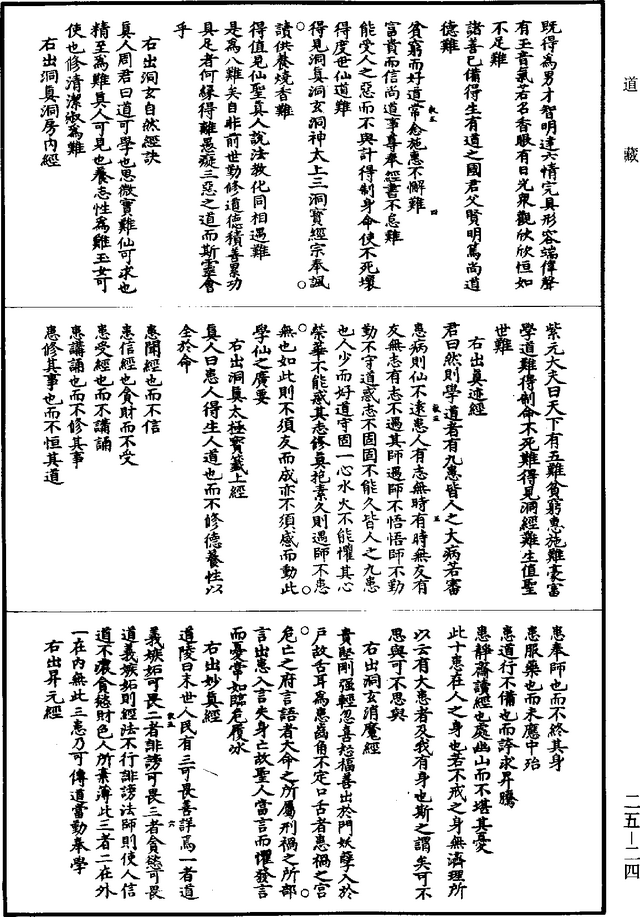 道藏
既得為男才智明達六情完具形容端偉聲
有玉音氣若名香眼有日光眾觀欣欣恒如
不足難
諸善已備得生有道之國君父賢明篤尚道
德難
貧窮而好道常念施惠不懈難
富貴而信尚道事專奉經書不怠難
能受人之惡而不與計得制身命使不死壞
得度世仙道難
得見洞真洞玄洞神太上三洞寶經宗奉諷
讀供養燒香難
得值見仙聖真人說法教化同相遇難
是為八難矣自非前世勤修道德積善累功
具足者何緣得離愚癡三惡之道而斯靈會
乎
右出洞玄自然經訣
真人周君曰道可學也思微實難仙可求也
精至為難真人可見也養志性為難玉女可
使也修清潔淑為難
右出洞真洞房內經
紫元夫夫曰天下有五難貧窮惠施難豪富
學道難得制命不死難得見洞經難生值聖
世難
右出真迹經
君曰然則學道者有九患皆人之大病若審
患病則仙不遠患人有志無時有時無友有
友無志有志不遇其師遇師不悟悟師不勤
勤不守道或志不固固不能久皆人之九患
也人少而好道守固一心水火不能懼其心
榮華不能惑其志修真抱素久則遇師不患
無也如此則不須友而成亦不須感而動此
學仙之廣要
右出洞真太極寶籙上經
真人曰患人得生人道也而不修德養性以
全於命
患聞經也而不信
患信經也貪財而不受
患受經也而不講誦
患講誦也而不修其事
患修其事也而不恒其道
患奉師也而不終其身
患服藥也而未應中殆
患道行不備也而誇求昇騰
患靜齋讀經也處幽山而不堪其憂
此十患在人之身也若不戒之身無濟理所
以云有大患者及我有身也斯之謂矣可不
思與可不思與
右出洞玄消魔經
貴堅剛強輕忽喜怒福善出於門妖孽入於
戶故舌耳為患齒角不定口舌者患禍之宮
危亡之府言語者大命之所屬刑禍之所部
言出患入言失身亡故聖人當言而懼發言
而憂常如臨危履冰
右出妙真經
道陵曰末世人民有三可畏善詳焉一者道
義嫉妬可畏二者誹謗可畏三者貪慾可畏
道義嫉妬則經法不行誹謗法師則使人信
道不濃貪慾財色人所棄薄此三者二在外
一在內無此三患乃可傳道當勤奉學
右出昇元經
二五—二四